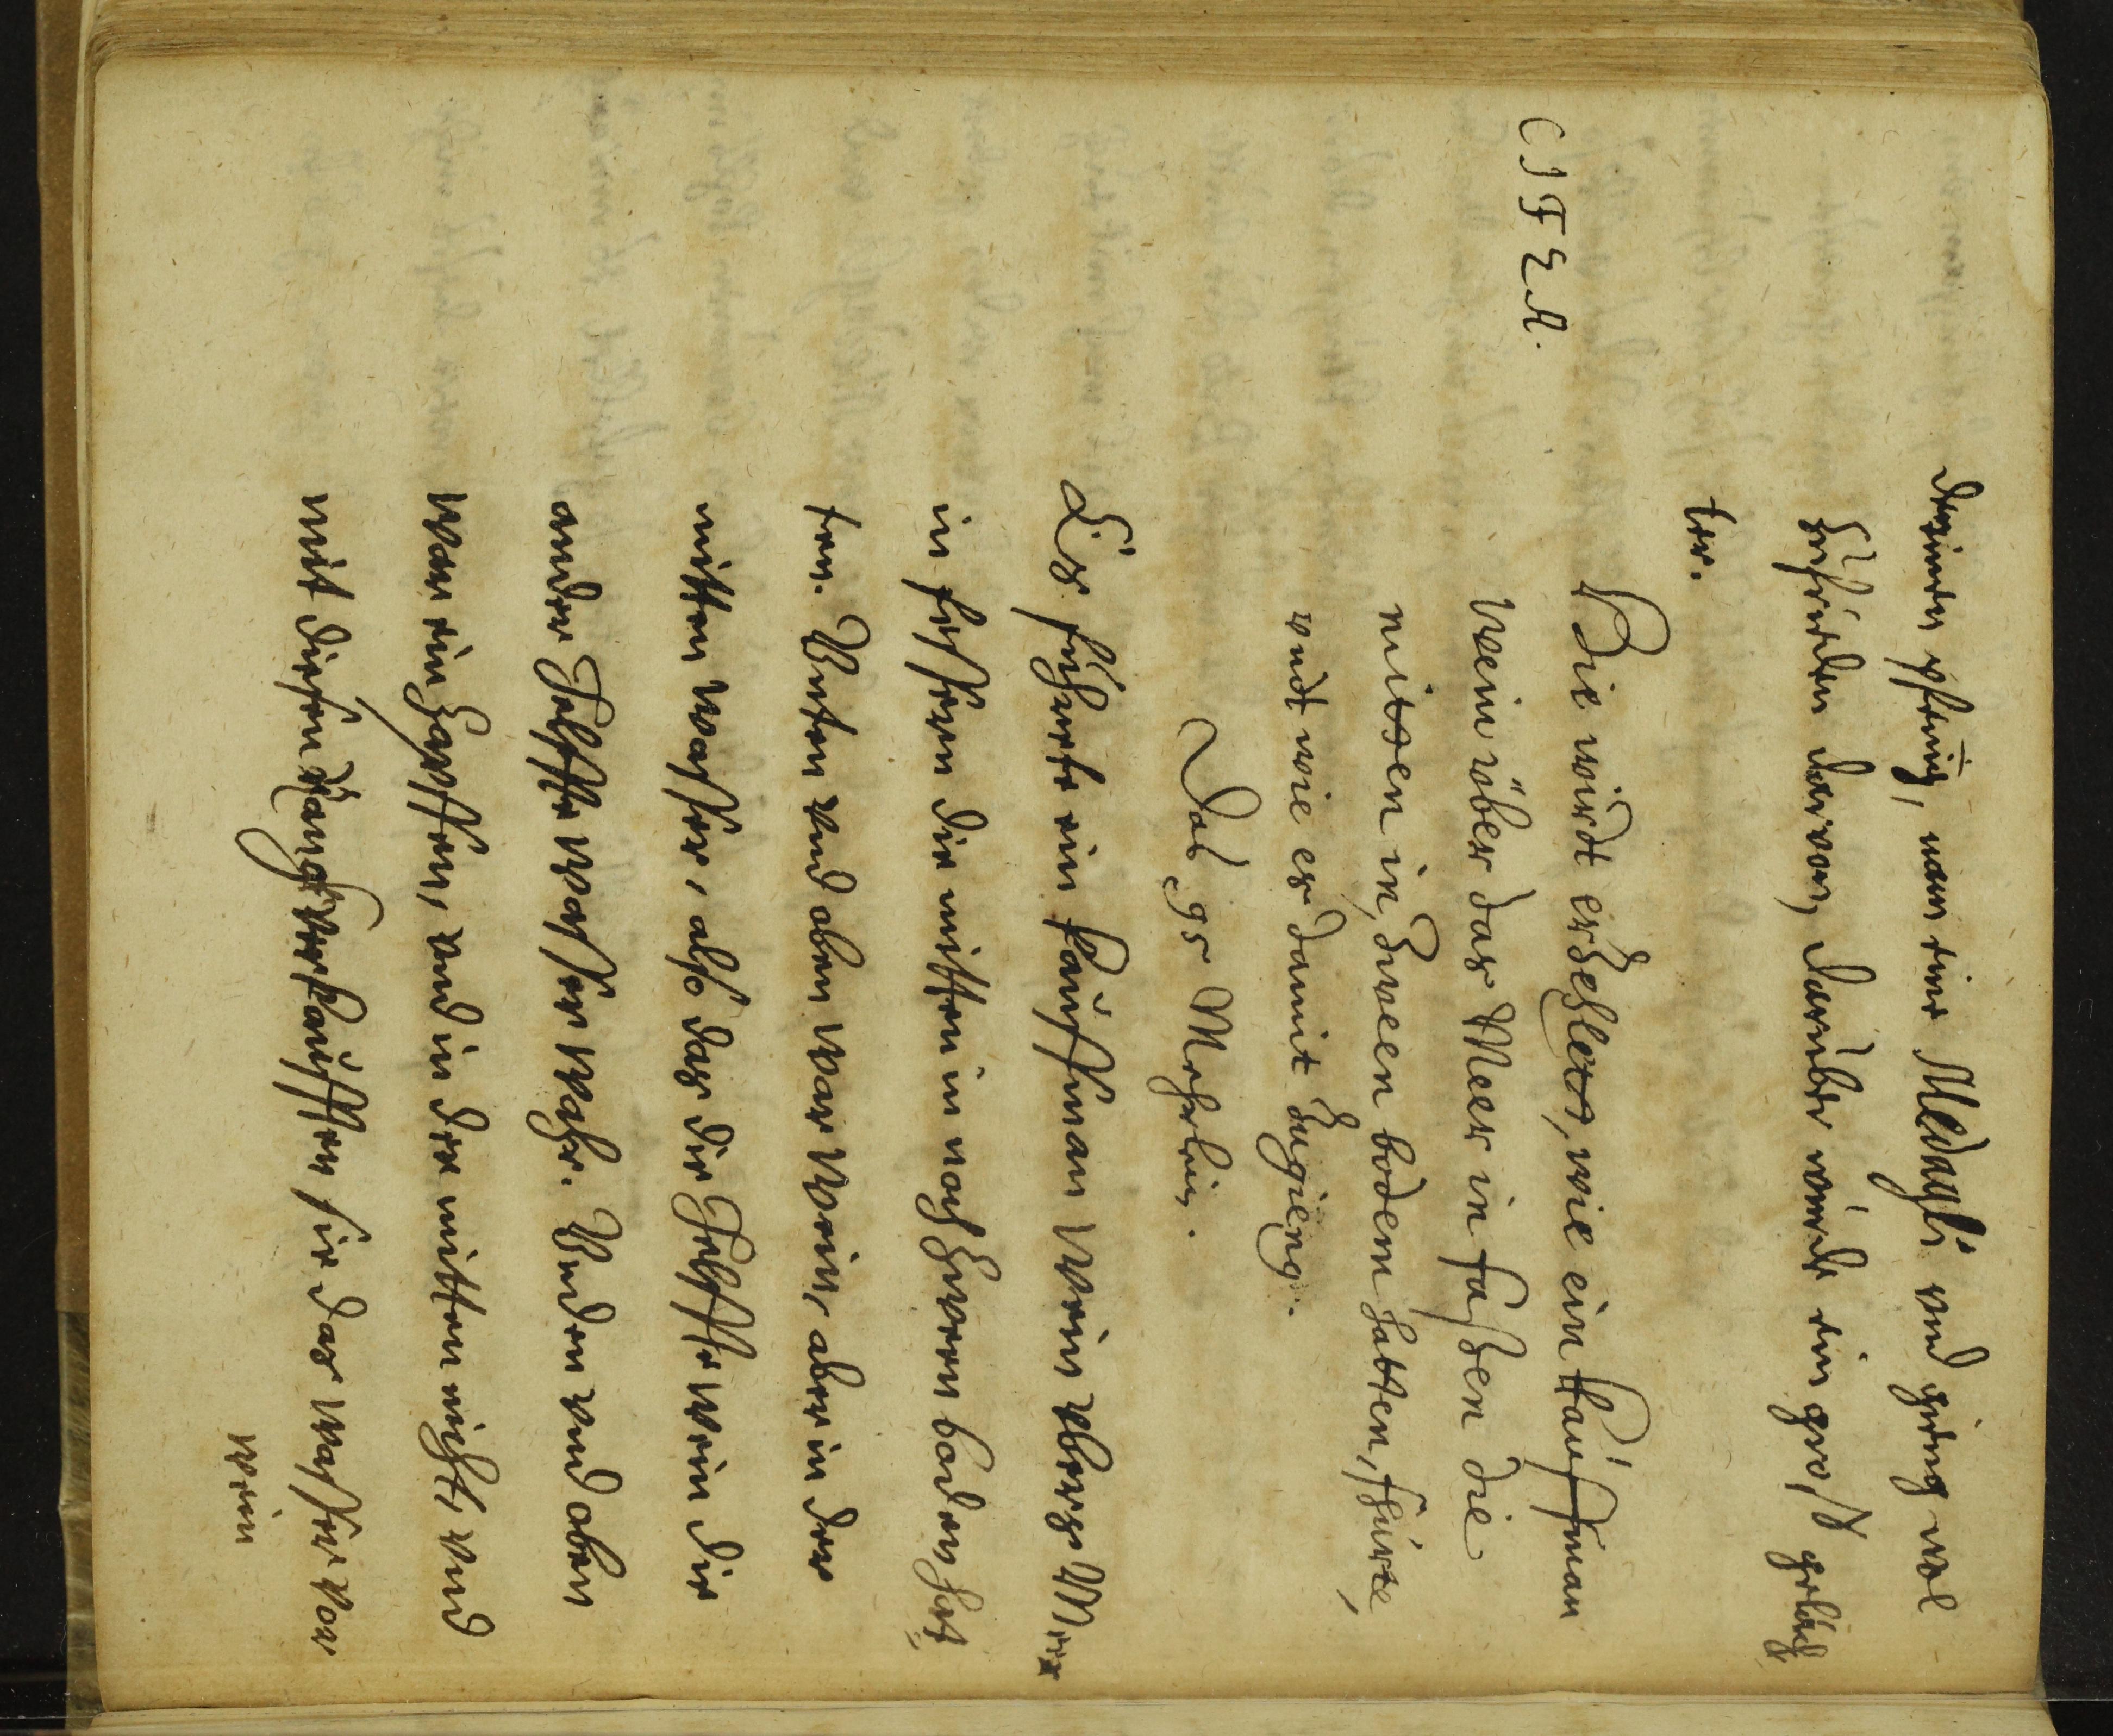 deinen pfenig, nam eine Medagli und gieng wol
Zufrieden darvon, darüber würde ein gros gelach
ter.
CIFER.
Hie wirdt erzehlett, wie ein kaufman
wein über das Meer in faßen die
mitten in Zween bodem hatten, fhürte,
undt wie er damit zugieng.
Das 95 Merlin.
Es fuhrete ein kaufman wein ubers Meer
in fessern die mitten in noch zween boden het„
ten. Unten und oben war wein, aber in der
mitten wasser, also das die Helffte wein die
ander Helffte wasser wahr. Unden und oben
war ein Zapffen, und in der mitten nicht, und
mit diesen verkaufften sie das wasser vor
wein